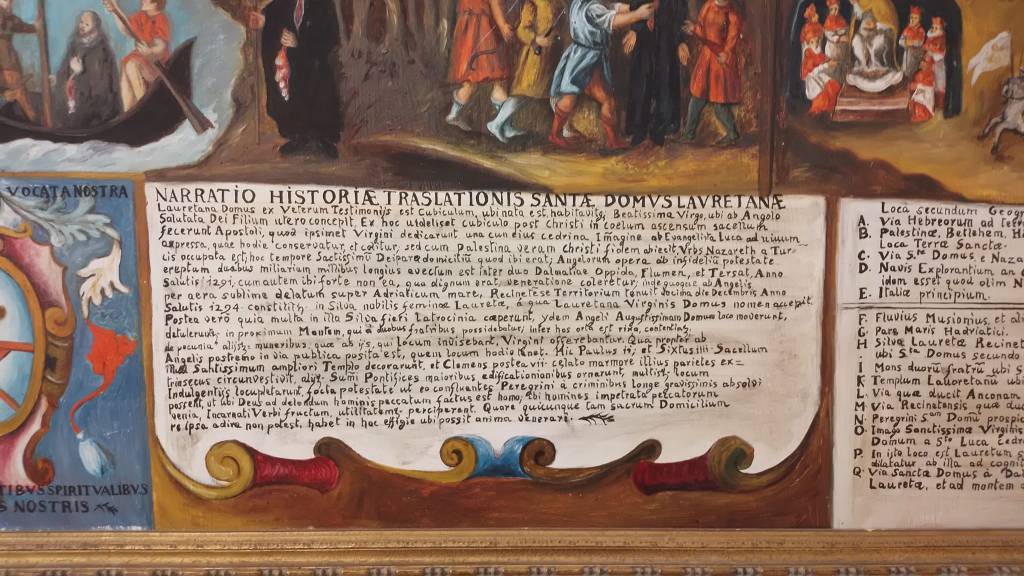 VOCATA NOSTRA
TIBVS SPIRITVALIBVS
S NOSTRIS
NARRATIO HISTORIÆ TRASLATIONIS SANTÆ DOMVS LAVRETANÆ
Lauretana Domus ex Veterum Testimonijs est Cubiculum, ubi nata est, habitavitq, Beatissima Virgo, ubi ab Angolo
Salutata Dei Filium Vero concepit. Ex hoc cubiculo post Christi in coelum ascensum sacellum
fecerunt Apostoli, quod ipsimet Virgini dedicarunt una cum eius cedrina Imagine ab Evangelista Luca ad uiuum
expressa, quae hodie conservatur, et colitur, sed cum Palestina veram Christi fidem abiecit Vrbs Nazareth a Tur-
cis occupata est, hoc tempore Sactissimũ Deiparæ domicitiũ quod ibi erat, Angelorum opera, ab infidelium potestate
ereptum duabus miliarium millibus longius avectum est inter duo Dalmatiae Oppida, Flumen, et Tersat, Anno
Salutis 1291, cum autem ibi forte non ea, qua dignum erat, veneratione coleretur, inde quoque ab Angelis
per aera sublime delatum super Adriaticum mare, Recinetese Territorium tenuit Decima die Decembris Anno
Salutis 1294 constitit, in Silva nobilis feminae Lauretæ, a qua Lauretana Virginis Domus nomen accepit.
Posta vero quia multa in illa Silva fieri Latrocinia cæperunt, ydem Angeli Augustissinam Domus loco moverunt,
detuleruntq, in proximum Montem, qui a duobus fratribus possidebatur, inter hos orta est rixa, contentioq,
de pecunia alijsq, muneribus, quæ ab ijs, qui locum invisebant, Virgini offerebantur. Qua propter ab
Angelis postremo in via publica posita est, quem locum hodio tenet. Hic Paulus ii, et Sixtus iiii Sacellum
illud Santissimum ampliori Templo decorarunt, et Clemens postea vii celato marmore illius parietes ex-
trinsecus circumvestivit, alijq, Sumi Pontifices maioribus edificationibus ornerunt, multisq, locum
Indulgentijs locupletarunt, facta potestate ut eo confluentes Peregrini a criminibus longe gravissimis absolvi
possent, ut ubi Deus ad delendum hominis peccatum factus est homo, ibi homines impetrata peccatorum
venia, Incarnati Verbi fructum, utilitatemq, perciperent. Quare quicunque tam sacrum Domicilium
re ipsa adire non potest, habet in hoc effigie ubi possit anima venerari.
Loca secundum Geogr
A. Via Hebreorum ad terr
B. Palestinæ, Betlehem, Hi
Loca Terræ Sanctæ.
C. Via Stæ Domus e Naza
D. Navis Explorantium an
idom esset quod olim N
E. Italiæ principium.
F. Fluvius Musionius, et ol
G. Pars Maris Hadriatici.
H Silva Lauretæ Recinet
ubi Sta Domus secundo
i Mons duorũ fratrũ ubi S
K Templum Lauretanũ ubi
L. Via quæ ducit Anconam
M Via Recinetensis quæ du
N Peregrini San Domũ prospic
O Imago Santissimæ Virginis
Domum a Sto Luca Cedri
P. In isto loco est Lauretum s
dilatatur ab illa ad cognit
Q Via Sanctæ Domus a Da
Lauretæ, et ad montem d